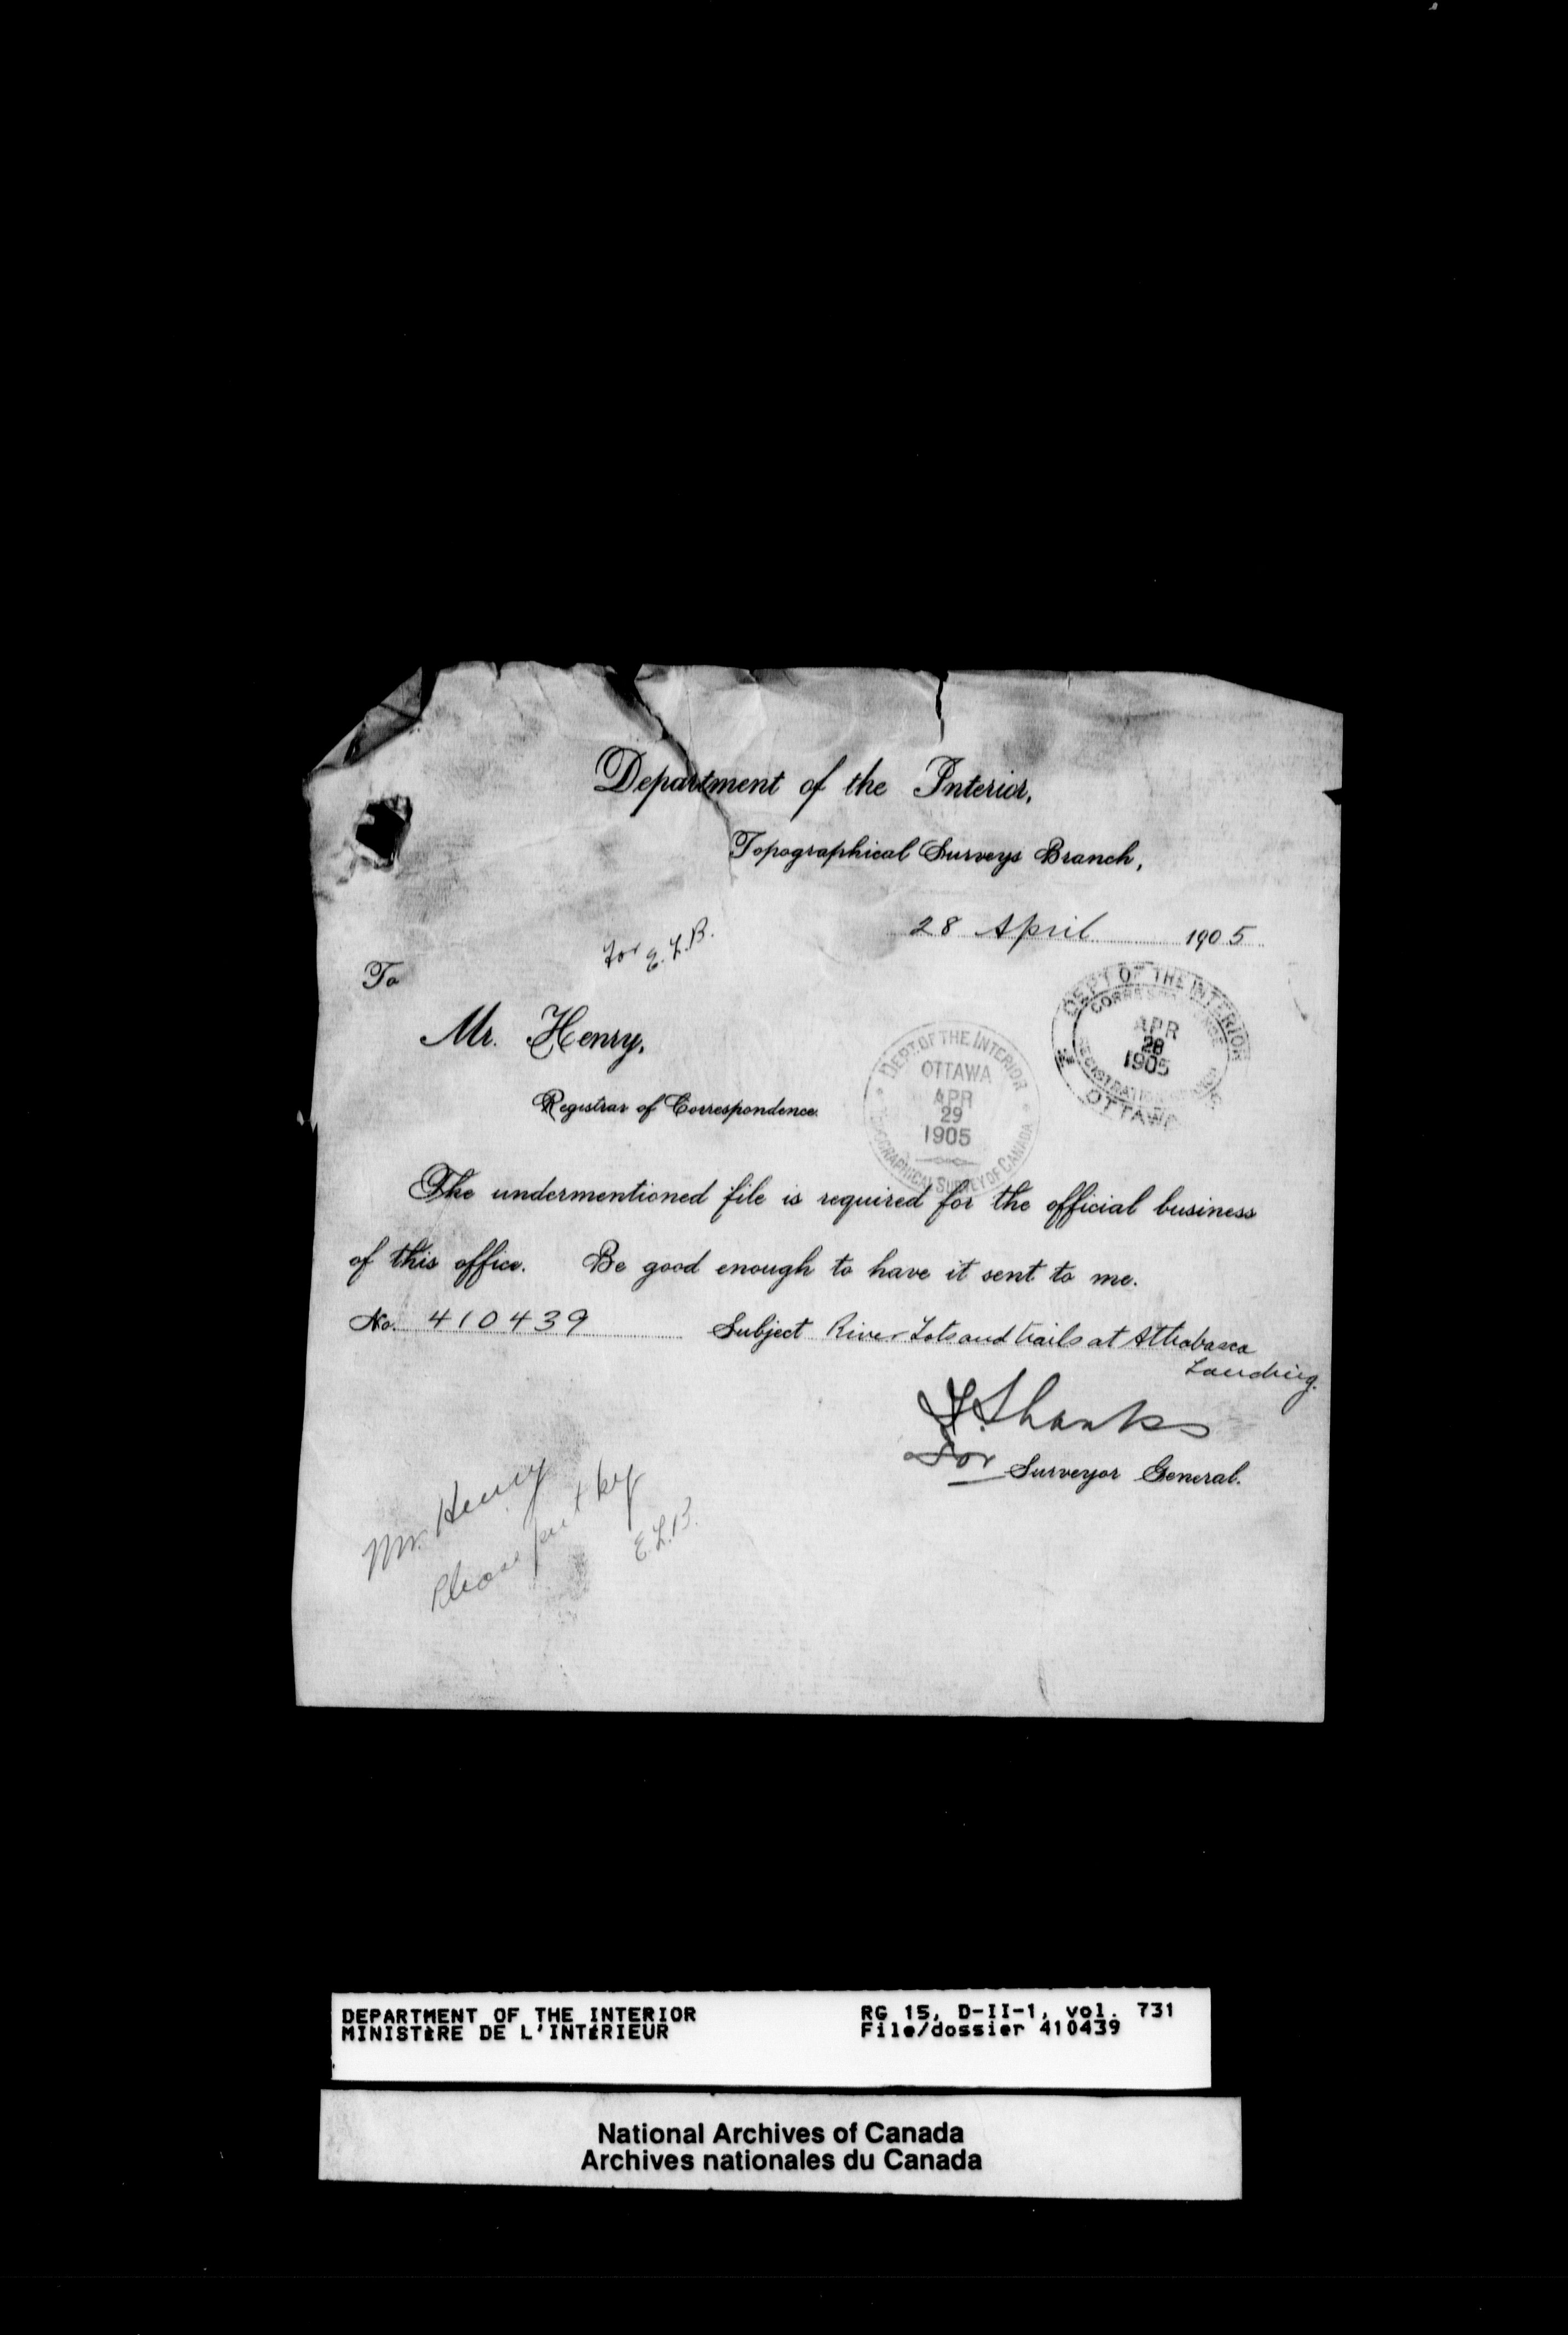 Department of the Interior,
Topographical Surveys Branch,
28 April 1905
For E.L.B.
To
Mr. Henry,
Registrar of Correspondence.
DEPT OF THE INTERIOR
APR
28
1905
REGISTRATION
OTTAWA
DEPT. OF THE INTERIOR
OTTAWA
APR
29
1905
TOPOGRAPHICAL SURVEY OF CANADA
The undermentioned file is required for the official business
of this office. Be good enough to have it sent to me.
No. 410439 Subject River Lots and trails at Athabasca
Landing.
T. Shanks
For Surveyor General.
Mr. Henry
Please put by
E.L.B.
DEPARTMENT OF THE INTERIOR RG 15, D-II-1, vol. 731
MINISTÈRE DE L'INTÉRIEUR File/dossier 410439
National Archives of Canada
Archives nationales du Canada